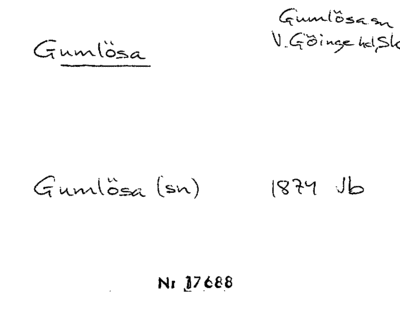 Gumlösa
Gumlösa sn
V. Göinge hd, Sk
Gumlösa (sn) 1874 Jb
Nr 17688